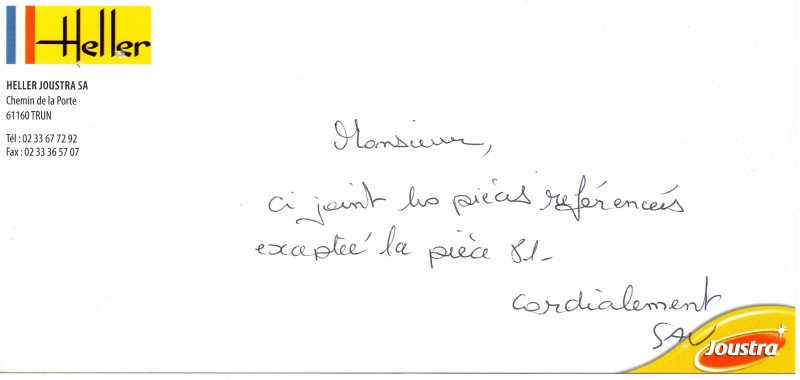 Heller
HELLER JOUSTRA SA
Chemin de la Porte
61160 TRUN
Tél : 02 33 67 72 92
Fax : 02 33 36 57 07
Monsieur,
ci joint les pièces referéncées
exceptée la pièce 81-
cordialement
SAV
Joustra